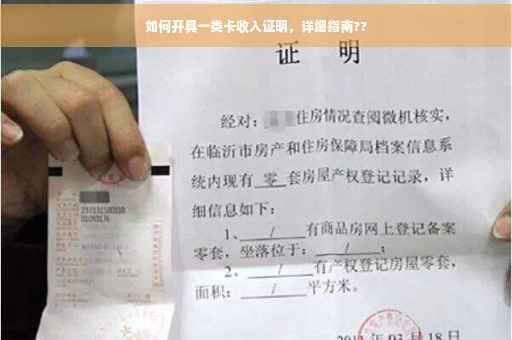 如何开具一类卡收入证明，详细指南??
证 明
经对：住房情况查阅微机核实，
在临沂市房产和住房保障局档案信息系
统内现有 零 套房屋产权登记记录，详
细信息如下：
1、 / 有商品房网上登记备案
零套，坐落位于： / ；
2、 / 有产权登记房屋零套，
面积： / 平方米。
年 03 月 18 日